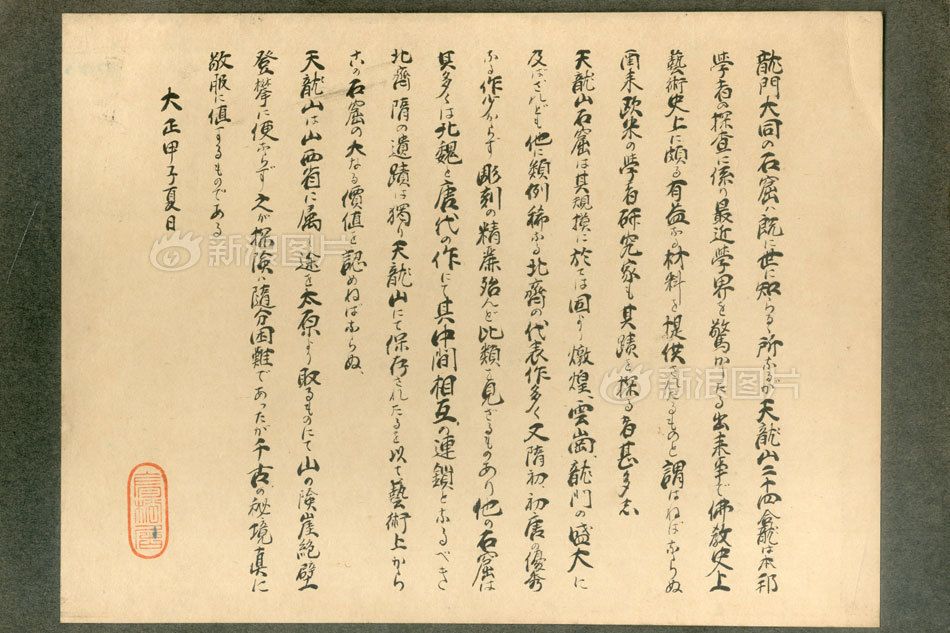 龍門大同の石窟ハ既に世に知らるゝ所なるが天龍山二十四龕は本邦
學者の探査に係り最近學界を驚かしたる出来事で佛教史上
藝術史上に頗る有益なる材料を提供されたるものと謂はねばならぬ
爾来欧米の學者研究家も其蹟を探る者甚多し
天龍山石窟は其規模に於ては固より燉煌、雲崗龍門の盛大に
及ばざれども他に類例稀なる北齊の代表作多く又隋初初唐の優秀
なる作少からず彫刻の精麗殆んど比類を見ざるものあり他の石窟は
其多くは北魏と唐代の作にて其中間相互の連鎖となるべき
北齊隋の遺蹟は獨り天龍山にて保存されたるを以て藝術上から
この石窟の大なる價値を認めねばならぬ、
天龍山は山西省に属し途を太原より取るものにて山の険崖絶壁
登攀に便ならず之が探険ハ隨分困難であったが千古の秘境真に
敬服に値するものである
大正甲子夏日
新浪图片
新浪图片